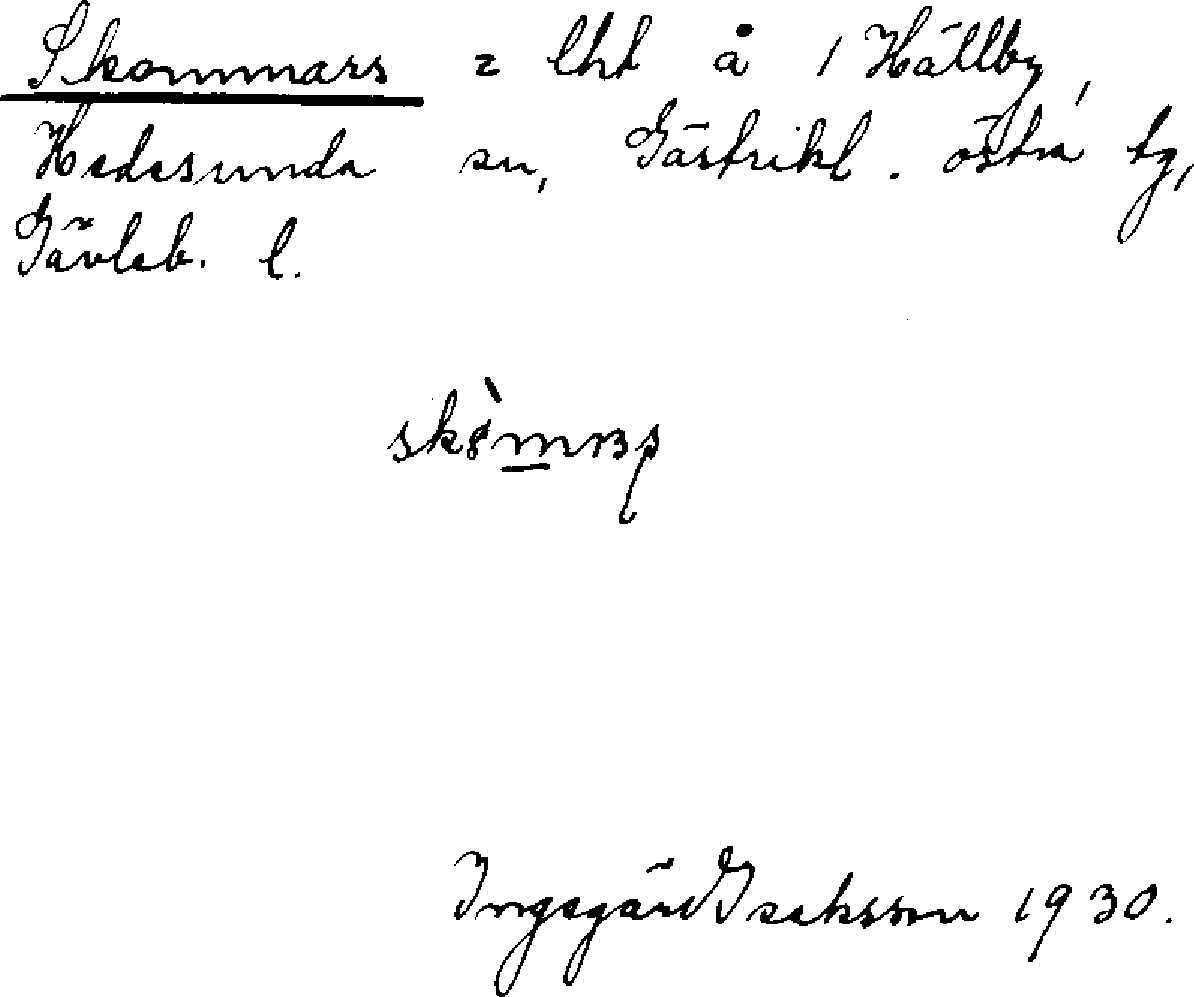 Skommars = lht å / Hällby,
Hedesunda sn, Gästrikl. östra tg,
Gävleb. l.
Ingegärd Isaksson 1930.